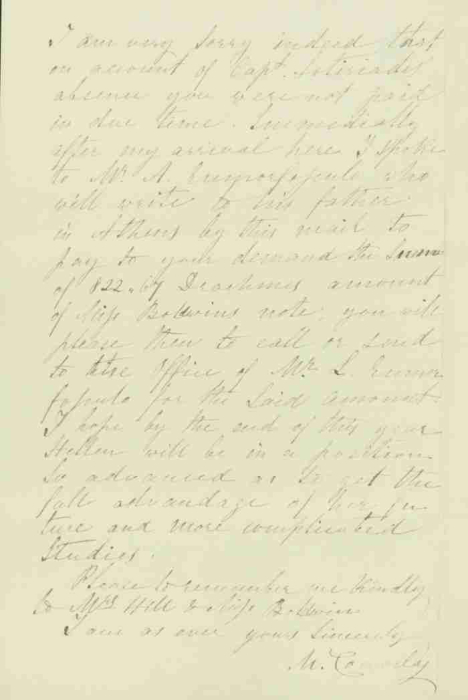 I am very sorry indeed that
on account of Capt. Sotiriadis
absence you were not paid
in due time. Immediatly
after my arrival here I spoke
to Mr. A. who
will write to his father
in Athens by this mail to
pay to your demand the Summ
of 822.67 Drachmes amount
of Miss Baldwins note, you will
please then to call or send
to the Office of Mr. L.
for the said amount.
I hope by the end of this year
Hellen will be in a position
so advanced as to get the
full advandage of her fu
ture and more complicated
Studies.
Please to remember me kindly
to Mrs Hill & Miss Baldwin
I am as ever yours Sincerely
M.